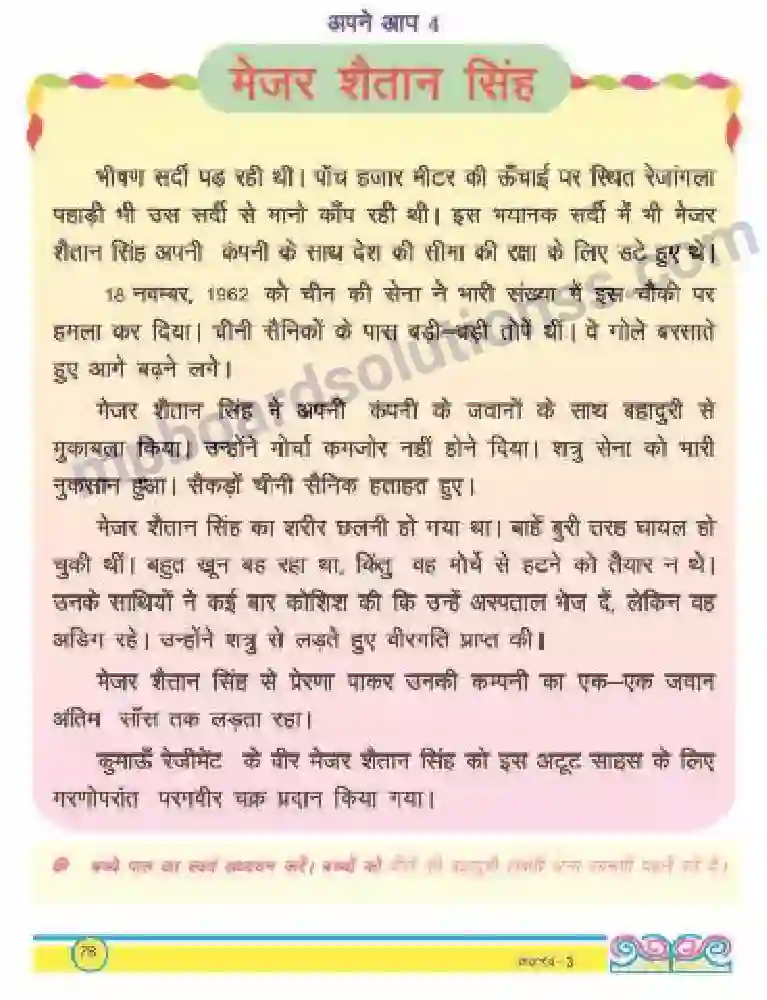 अपने आप 4
मेजर शैतान सिंह
भीषण सर्दी पड़ रही थी। पाँच हजार मीटर की ऊँचाई पर स्थित रेजांगला
पहाड़ी भी उस सर्दी से मानो काँप रही थी। इस भयानक सर्दी में भी मेजर
शैतान सिंह अपनी कंपनी के साथ देश की सीमा की रक्षा के लिए डटे हुए थे।
18 नवम्बर, 1962 को चीन की सेना ने भारी संख्या में इस चौकी पर
हमला कर दिया। चीनी सैनिकों के पास बड़ी-बड़ी तोपें थीं। वे गोले बरसाते
हुए आगे बढ़ने लगे।
मेजर शैतान सिंह ने अपनी कंपनी के जवानों के साथ बहादुरी से
मुकाबला किया। उन्होंने मोर्चा कमजोर नहीं होने दिया। शत्रु सेना को भारी
नुकसान हुआ। सैकड़ों चीनी सैनिक हताहत हुए।
मेजर शैतान सिंह का शरीर छलनी हो गया था। बाहें बुरी तरह घायल हो
चुकी थीं। बहुत खून बह रहा था, किंतु वह मोर्चे से हटने को तैयार न थे।
उनके साथियों ने कई बार कोशिश की कि उन्हें अस्पताल भेज दें, लेकिन वह
अडिग रहे। उन्होंने शत्रु से लड़ते हुए वीरगति प्राप्त की।
मेजर शैतान सिंह से प्रेरणा पाकर उनकी कम्पनी का एक-एक जवान
अंतिम साँस तक लड़ता रहा।
कुमाऊँ रेजीमेंट के वीर मेजर शैतान सिंह को इस अटूट साहस के लिए
मरणोपरांत परमवीर चक्र प्रदान किया गया।
बच्चे पाठ का स्वयं अध्ययन करें। बच्चों को
78
mpboardsolutionss.com